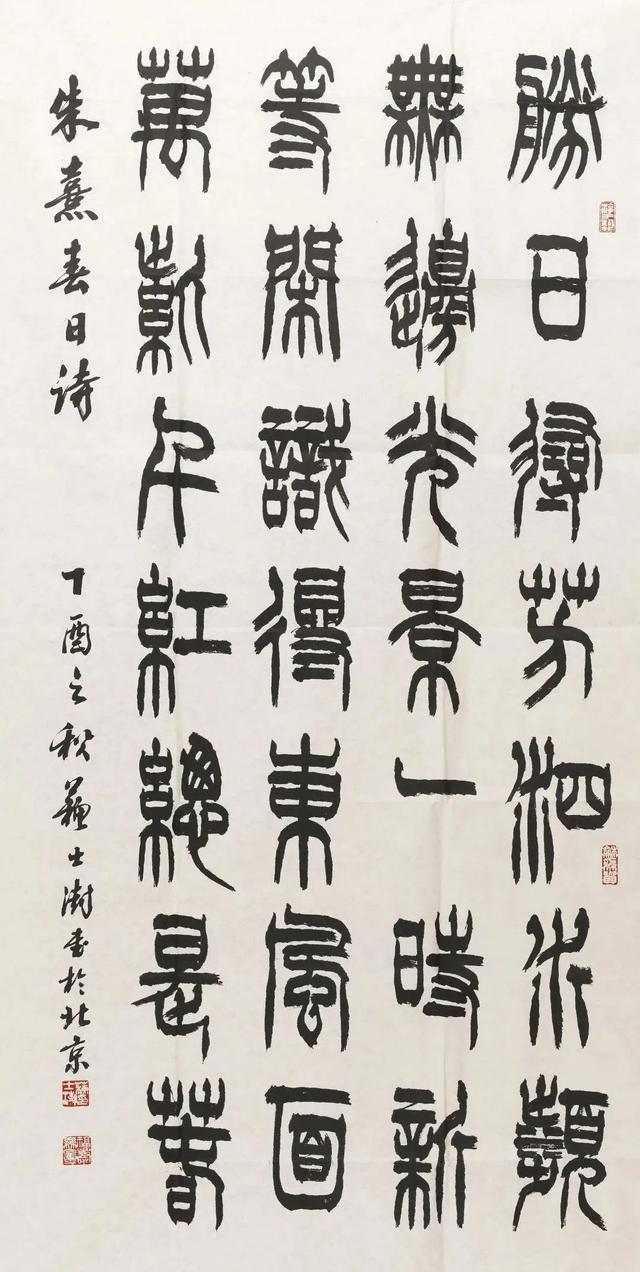 勝日尋芳泗水瀕
無邊光景一時新
等閑識得東風面
萬紫千紅總是春
朱熹春日詩
丁酉之秋蘇士澍書於北京